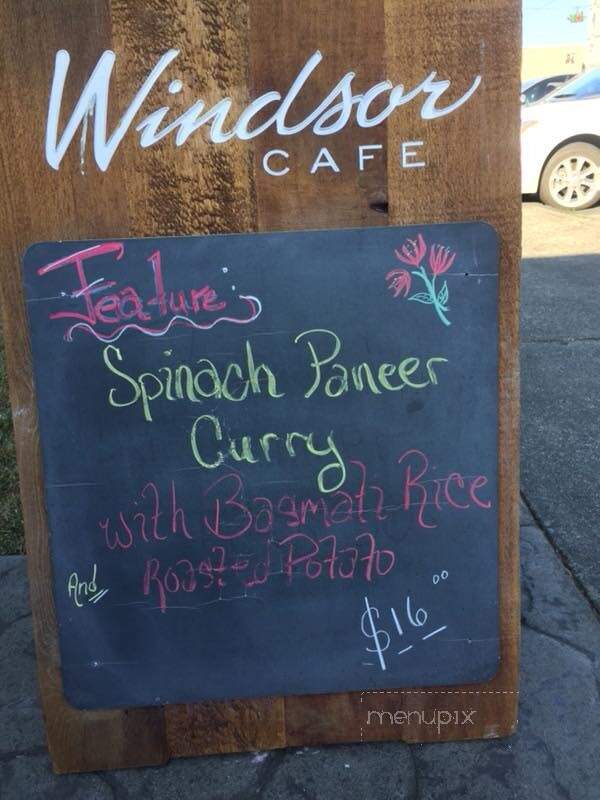 Windsor
CAFE
Feature:
Spinach Paneer
Curry
with Basmati Rice
And Roasted Potato
$16.00
menupix